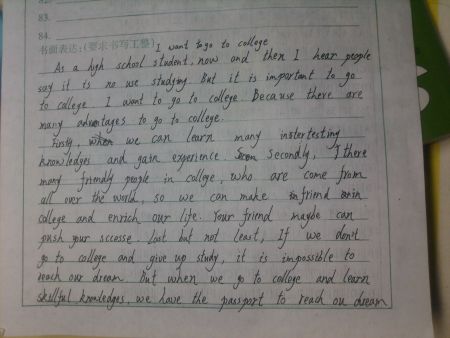 83.
84.
书面表达:(要求书写工整) I want to go to college
As a high school student, now and then I hear people
say it is no use studying. But it is important to go
to college. I want to go to college. Because there are
many advantages to go to college.
Firstly, when we can learn many instertesting
knowledges and gain experience. Secondly, I there
many friendly people in college, who are come from
all over the world, so we can make friend in
college and enrich our life. Your friend maybe can
push your sccesse. Last but not least, If we don't
go to college and give up study, it is impossible to
reach our dream. But when we go to college and learn
skillful knowledges, we have the passport to reach ou dream